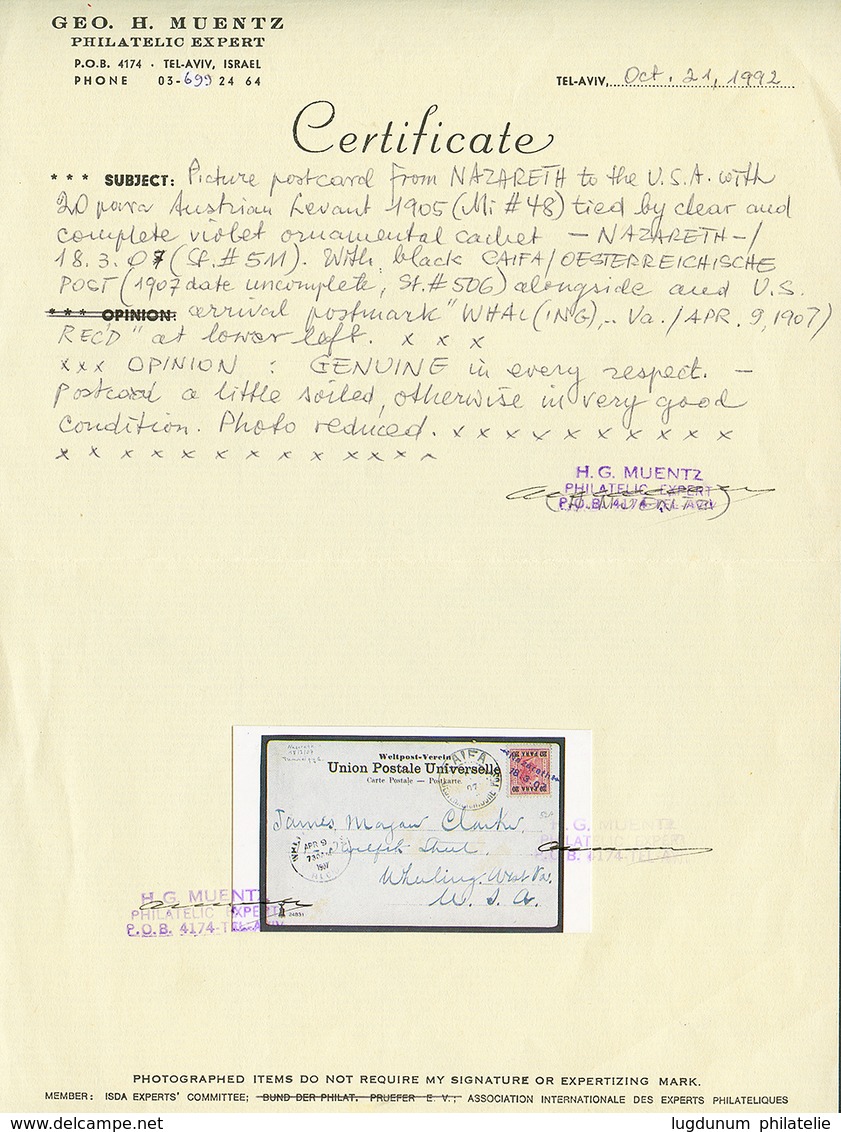 GEO. H. MUENTZ
PHILATELIC EXPERT
P.O.B. 4174 · TEL-AVIV, ISRAEL
PHONE 03-699 24 64
TEL-AVIV, Oct. 21, 1992
Certificate
* * * SUBJECT: Picture postcard from NAZARETH to the U.S.A. with
20 para Austrian Levant 1905 (Mi # 48) tied by clear and
complete violet ornamental cachet – NAZARETH – /
18.3.07 (St. # 511). With black CAIFA/OESTERREICHISCHE
POST (1907 date uncomplete, St. # 506) alongside and U.S.
* * * OPINION: arrival postmark "WHAL(ING), .. Va. / APR. 9, 1907)
REC'D" at lower left. x x x
x x x OPINION : GENUINE in every respect. –
Postcard a little soiled, otherwise in very good
condition. Photo reduced. x x x x x x x x x x
x x x x x x x x x x x x x
H. G. MUENTZ
PHILATELIC EXPERT
P.O.B. 4174-TEL-AVIV
(H. MUENTZ)
Weltpost-Verein
Union Postale Universelle
Carte Postale — Postkarte
CAIFA
07
20 PARA 20
Nazareth
18.3.07
James Magaw Clarke,
APR 9
1907
REC'D
Wheeling. West Va.
U. S. A.
24931
H. G. MUENTZ
PHILATELIC EXPERT
P.O.B. 4174-TEL-AVIV
H. G. MUENTZ
PHILATELIC EXPERT
P.O.B. 4174-TEL-AVIV
PHOTOGRAPHED ITEMS DO NOT REQUIRE MY SIGNATURE OR EXPERTIZING MARK.
MEMBER: ISDA EXPERTS' COMMITTEE; BUND DER PHILAT. PRUEFER E. V.; ASSOCIATION INTERNATIONALE DES EXPERTS PHILATELIQUES
lugdunum philatelie